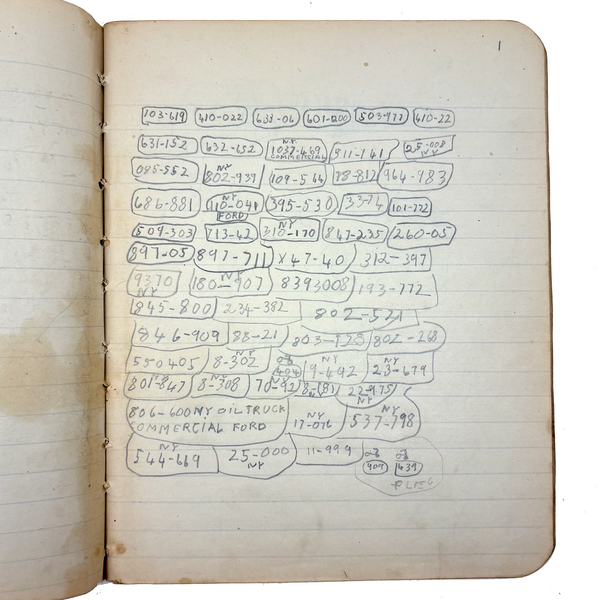 1
103-619 410-022 633-06 601-200 503-477 410-22
631-152 632-652 NY 1037-469 COMMERCIAL 811-141 25-008 NY
085-552 NY 802-939 109-566 78-812 964-983
686-881 NY 110-041 FORD 395-530 33-74 101-772
509-303 713-42 NY 310-170 847-235 260-05
897-05 897-711 X47-40 312-397
9370 NY NY 180-907 8393008 193-772
845-800 234-382 802-521
846-909 88-21 803-128 802-268
550405 NY 8-302 404 NY 9-492 NY 23-679
801-847 NY 8-308 NY 70-92 8-(8) 22-975 NY
806-600 NY OIL TRUCK
COMMERCIAL FORD NY 17-076 NY 537-798
NY 544-669 25-000 NY 11-999 409 439